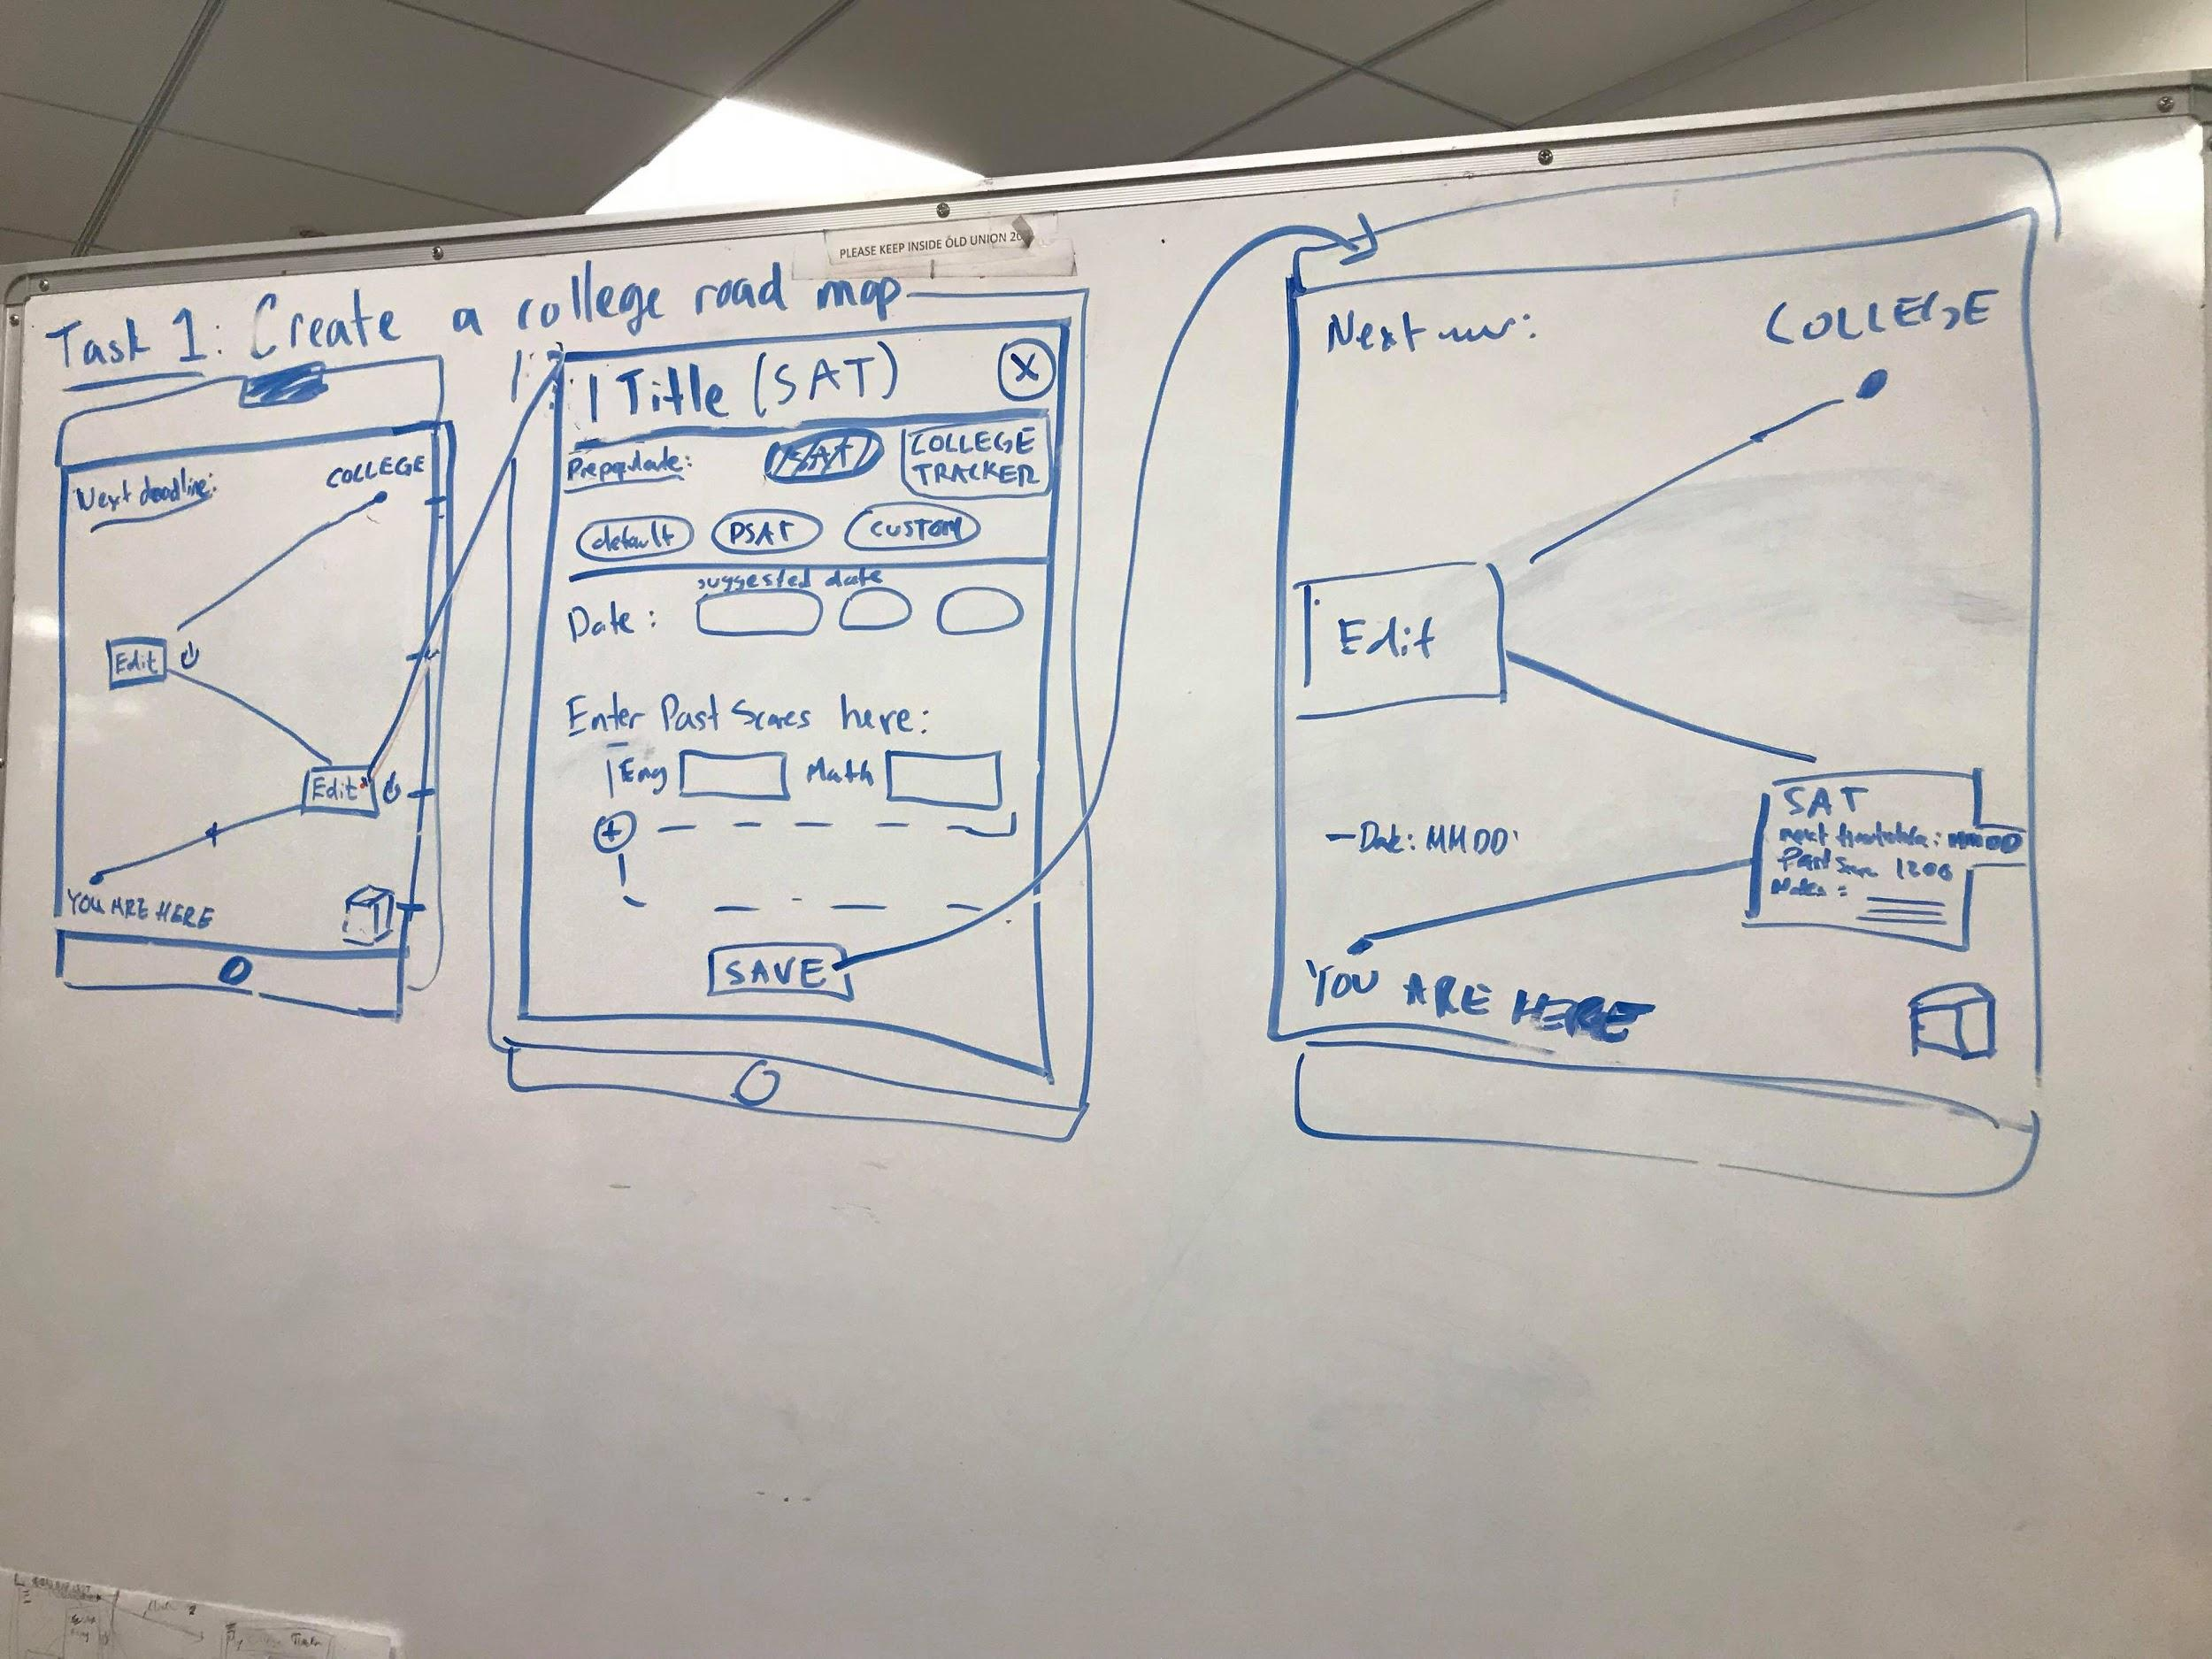 PLEASE KEEP INSIDE OLD UNION 20
Task 1: Create a college road map
Next deadline:
COLLEGE
Edit
Edit*
YOU ARE HERE
Title (SAT)
X
Prepopulate:
SAT
COLLEGE
TRACKER
default
PSAT
CUSTOM
suggested date
Date:
Enter Past Scores here:
Eng
Math
+
SAVE
Next
COLLEGE
Edit
- Date: MMDD
SAT
next : MMDD
Past Score 1200
Notes:
YOU ARE HERE